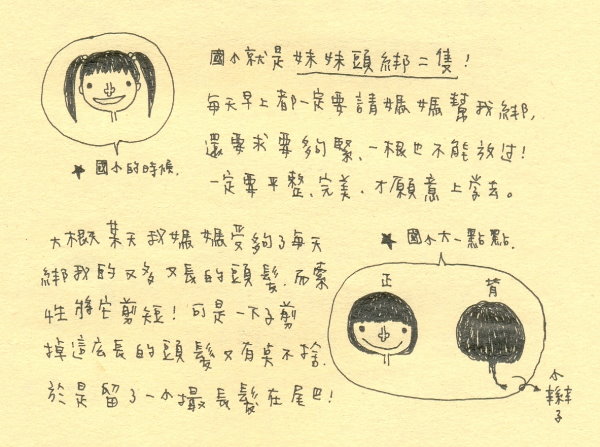 國小就是妹妹頭綁二隻!
每天早上都一定要請媽媽幫我綁,
還要求要夠緊、一根也不能放過!
一定要平整、完美、才願意上學去。
★國小的時候.
★國小大一點點.
大概某天我媽媽受夠了每天
綁我的又多又長的頭髮.而索
性將它剪短!可是一下子剪
掉這広長的頭髮又有桌不捨.
於是留了一小撮長髮在尾巴!
正
背
小辮子